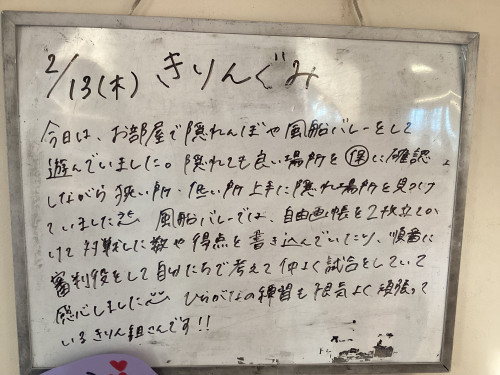 2/13(木) きりんぐみ
今日は、お部屋で隠れんぼや風船バレーをして
遊んでいました。隠れても良い場所を㋭に確認
しながら狭い所・低い所上手に隠れ場所を見つけ
ていました 風船バレーでは、自由画帳を2枚立てか
けて対戦した数や得点を書き込んでいたり、順番に
審判役をして自分たちで考えて仲よく試合をしていて
感心しました ひらがなの練習も根気よく頑張って
いるきりん組さんです!!